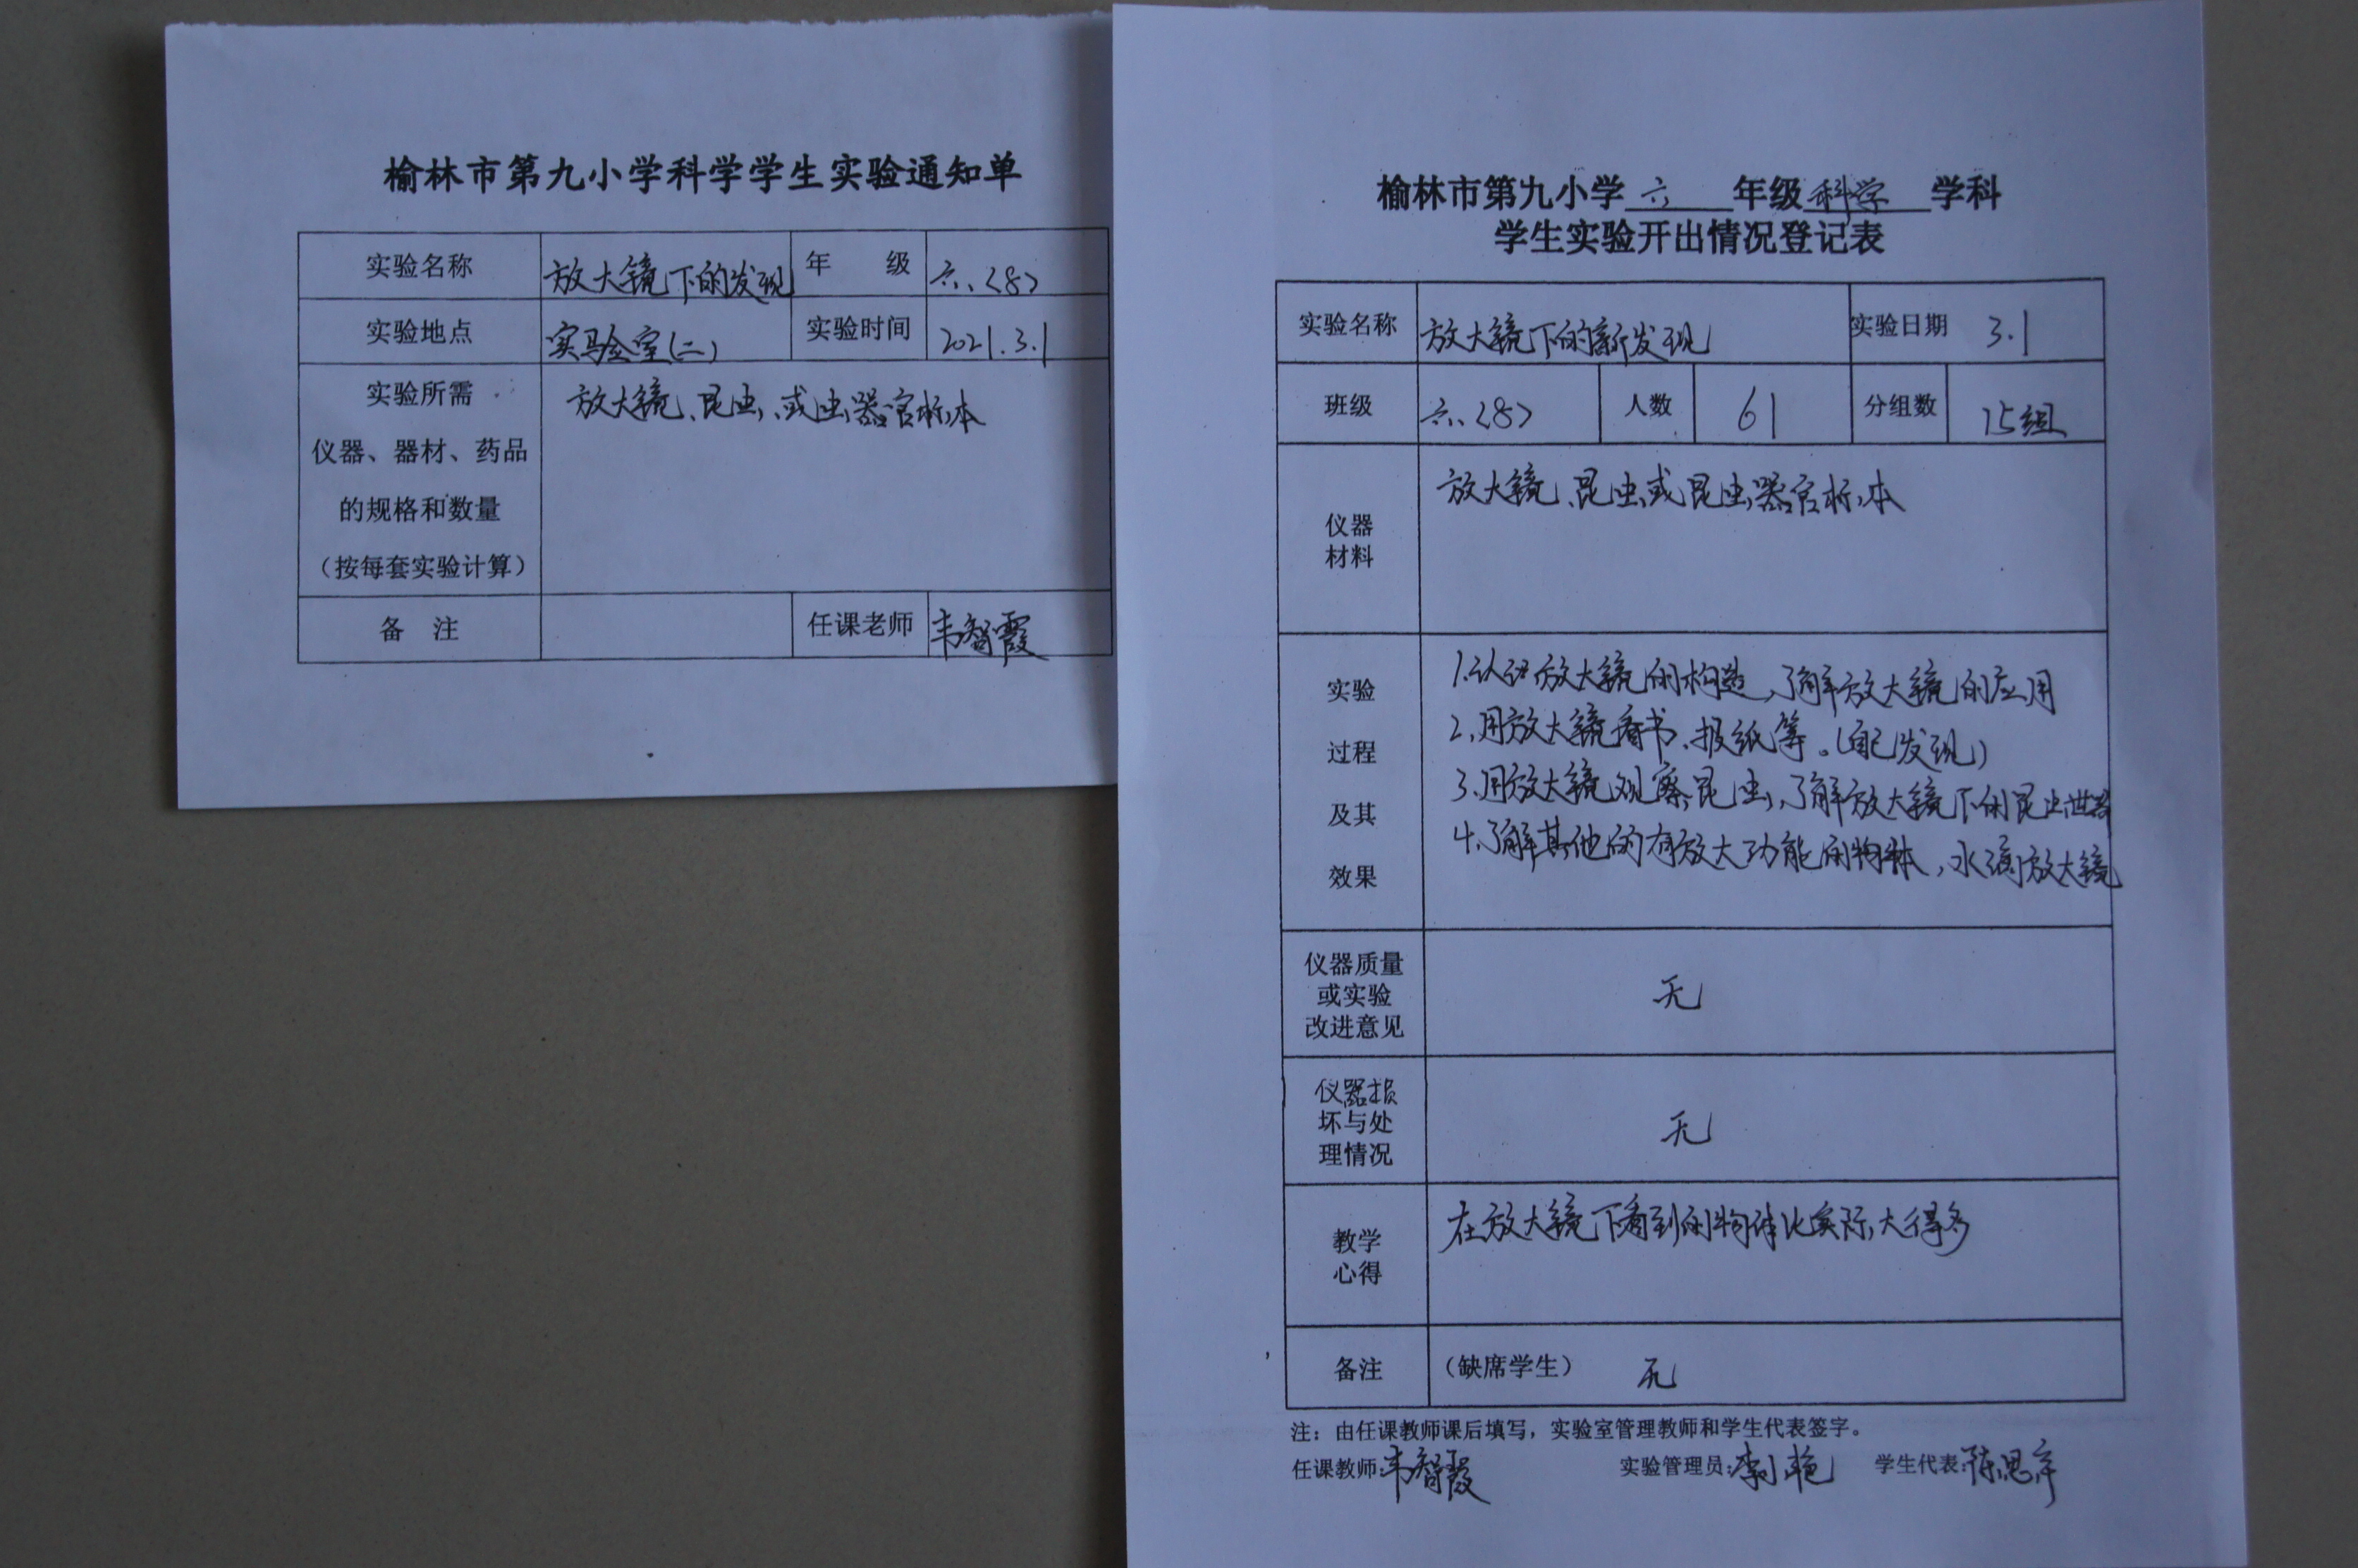 榆林市第九小学科学学生实验通知单
实验名称 放大镜下的发现 年 级 六、〈8〉
实验地点 实验室(二) 实验时间 2021.3.1
实验所需
仪器、器材、药品
的规格和数量
（按每套实验计算）
放大镜、昆虫、或虫器官标本
备 注 任课老师 韦智霞
榆林市第九小学 六 年级 科学 学科
学生实验开出情况登记表
实验名称 放大镜下的新发现 实验日期 3.1
班级 六、〈8〉 人数 61 分组数 15组
仪器
材料
放大镜、昆虫或昆虫器官标本
实验
过程
及其
效果
1.认识放大镜的构造,了解放大镜的应用
2.用放大镜看书、报纸等。(自己发现)
3.用放大镜观察昆虫,了解放大镜下的昆虫世界
4.了解其他的有放大功能的物体,水滴放大镜
仪器质量
或实验
改进意见
无
仪器损
坏与处
理情况
无
教学
心得
在放大镜下看到的物体比实际大得多
备注 （缺席学生） 无
注：由任课教师课后填写，实验室管理教师和学生代表签字。
任课教师:韦智霞 实验管理员:李艳 学生代表:陈思